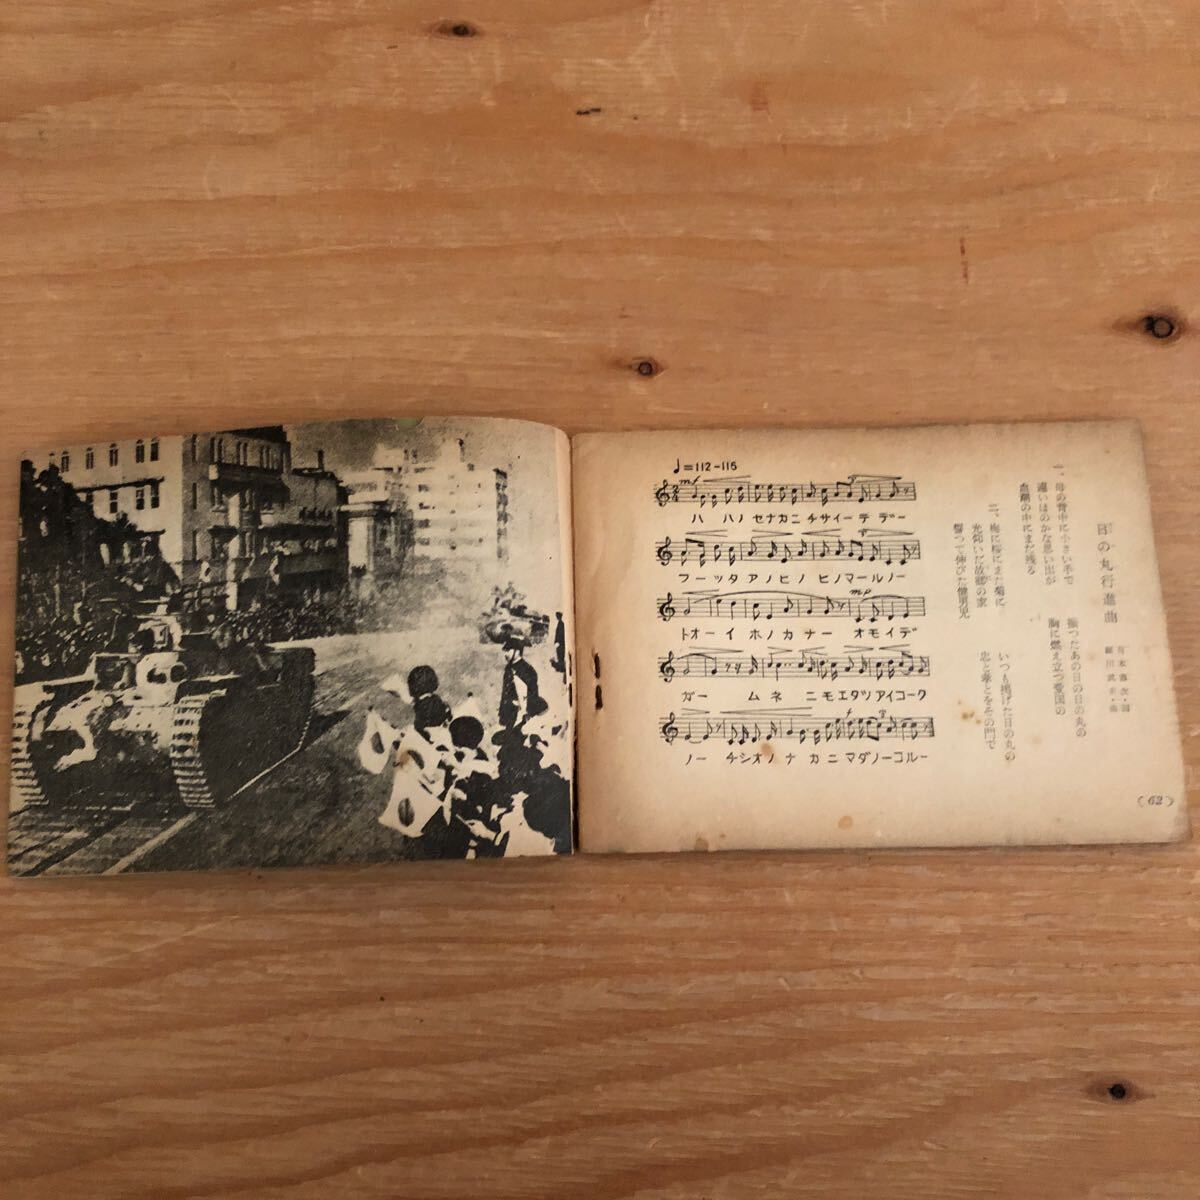 日の丸行進曲
一、母の背中に小さい手で
振つたあの日の日の丸の
遠いほのかな思い出が
胸に燃え立つ愛国の
血潮の中にまだ残る
二、梅に桜にまた菊に
いつも掲げた日の丸の
光仰いだ故郷の家
忠と孝とをその門で
誓つて伸びた健男児
♩=112-116
mf
ハ ハノ セナカニ チサイーテ デー
フーッタ アノヒノ ヒノマールノー
mp
トオーイ ホノカナー オモイデ
ガー ムネニ モエタツ アイコーク
f
ノー チシオノ ナカニ マダノーコルー
(62)